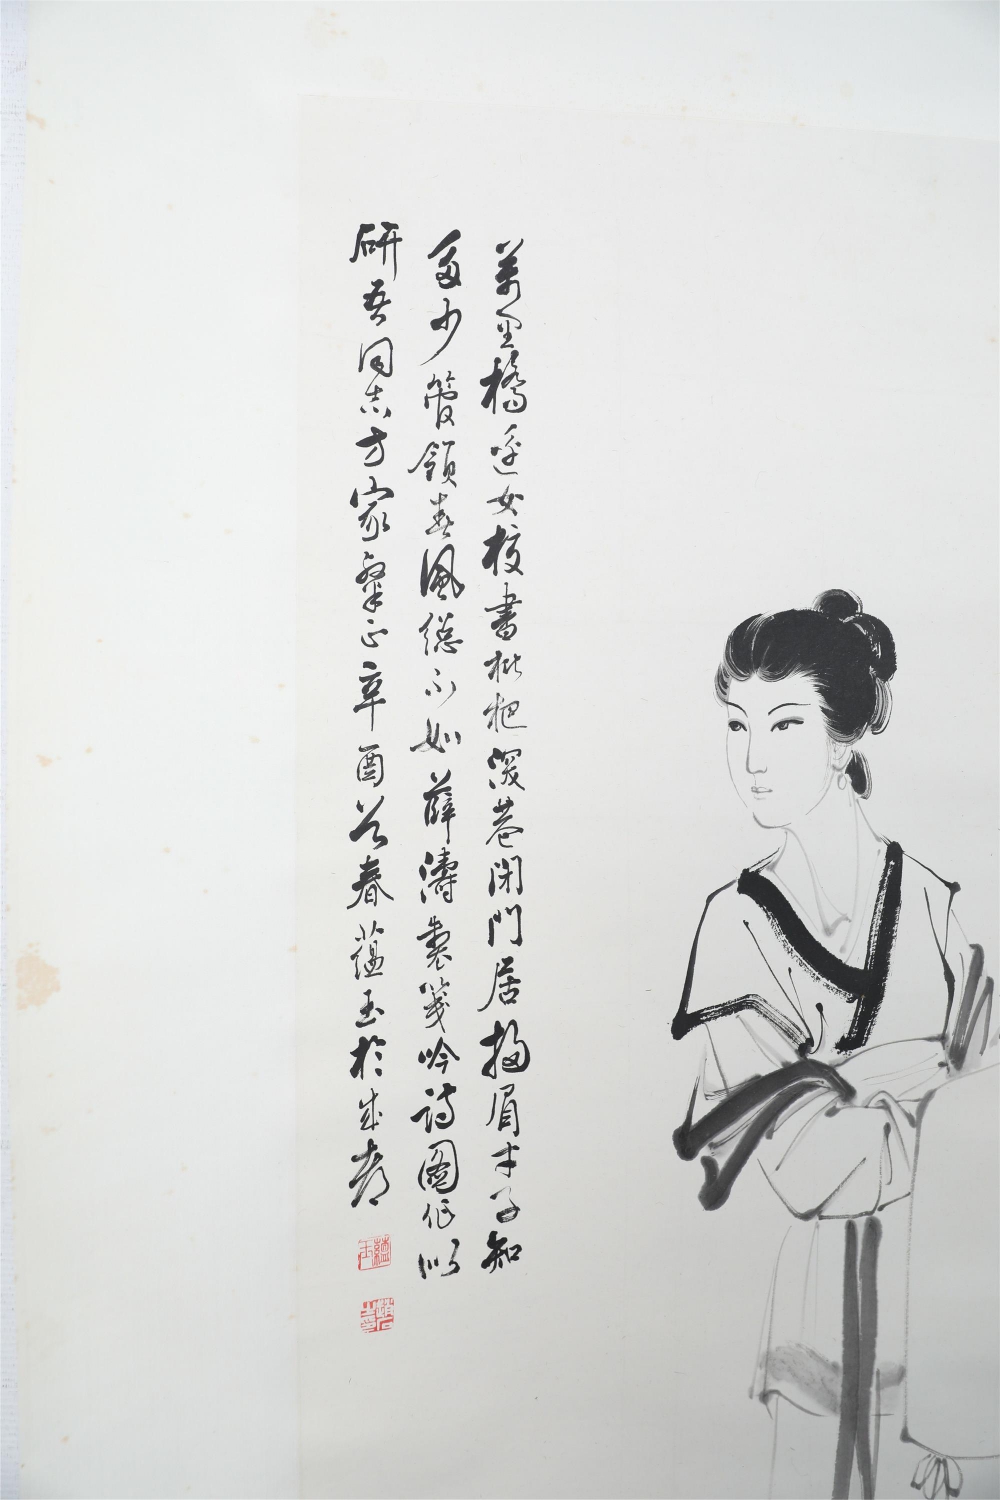 萬里橋邊女校書枇杷深巷閉門居掃眉才子知
多少管領春風總不如薛濤製箋吟詩圖作以
研吾同志方家粲正辛酉公春蘊玉於成都
蘊玉